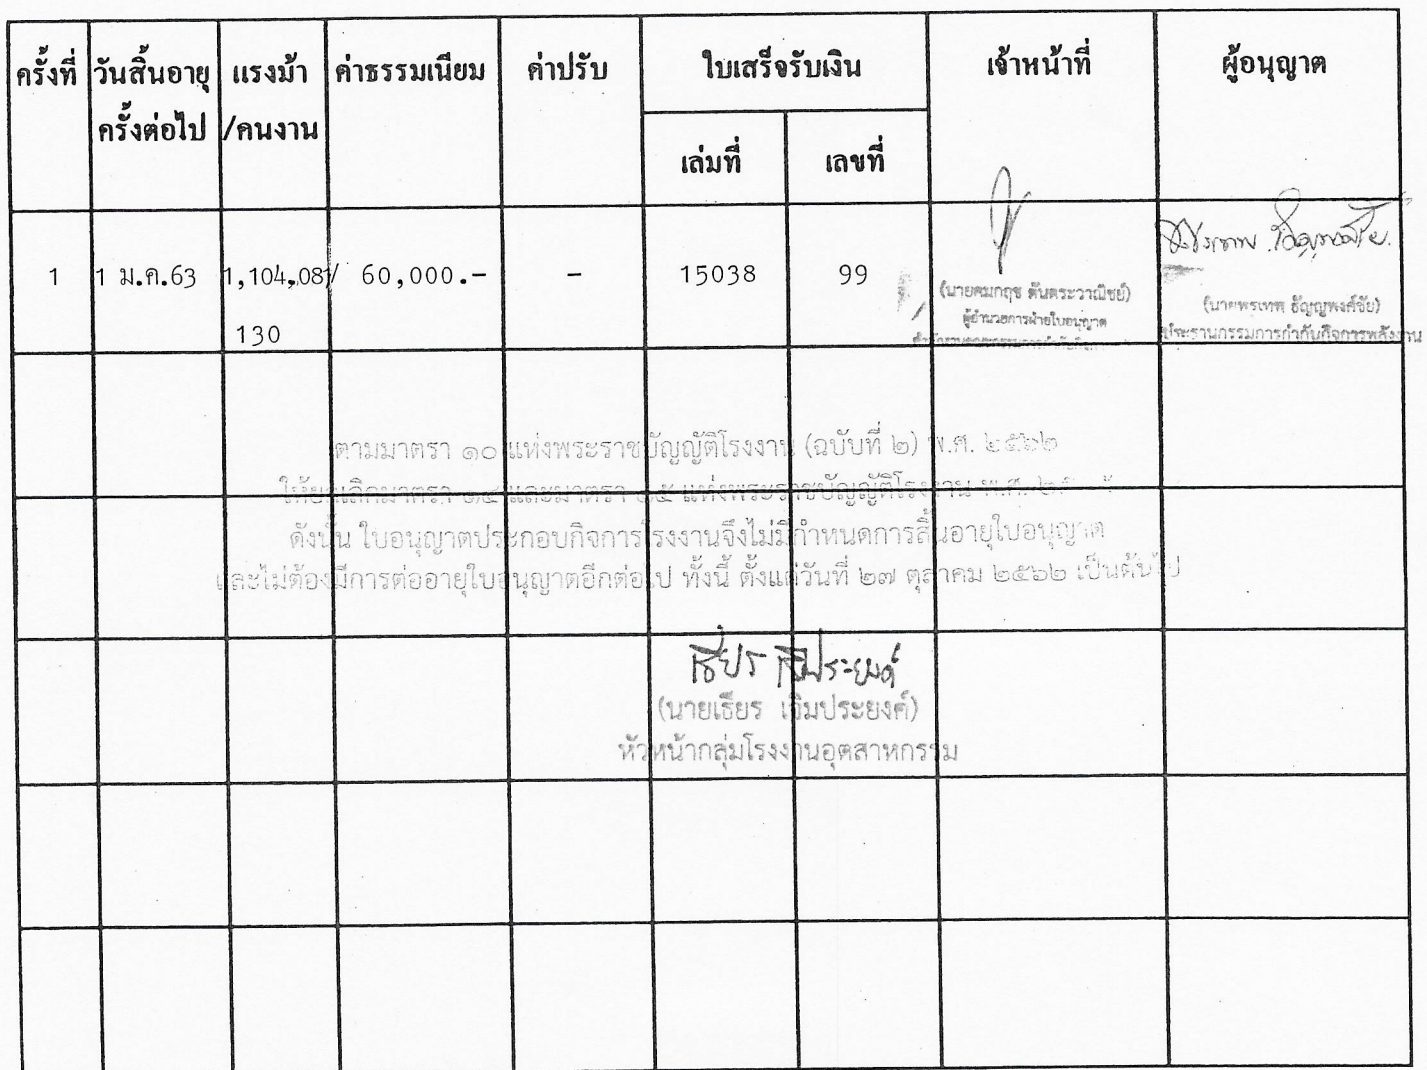 ครั้งที่ วันสิ้นอายุ แรงม้า ค่าธรรมเนียม ค่าปรับ ใบเสร็จรับเงิน เจ้าหน้าที่ ผู้อนุญาต
ครั้งต่อไป /คนงาน
เล่มที่ เลขที่
1 1 ม.ค.63 1,104.08/ 60,000.- - 15038 99
130
(นายคมกฤช ตันตระวาณิชย์)
ผู้อำนวยการฝ่ายใบอนุญาต
(นายพรเทพ ธัญญพงศ์ชัย)
ประธานกรรมการกำกับกิจการพลังงาน
ตามมาตรา ๑๐ แห่งพระราชบัญญัติโรงงาน (ฉบับที่ ๒) พ.ศ. ๒๕๖๒
ให้ยกเลิกมาตรา ๑๔ และมาตรา ๑๕ แห่งพระราชบัญญัติโรงงาน พ.ศ.
ดังนั้น ใบอนุญาตประกอบกิจการโรงงานจึงไม่มีกำหนดการสิ้นอายุใบอนุญาต
และไม่ต้องมีการต่ออายุใบอนุญาตอีกต่อไป ทั้งนี้ ตั้งแต่วันที่ ๒๗ ตุลาคม ๒๕๖๒ เป็นต้นไป
(นายเธียร เจิมประยงค์)
หัวหน้ากลุ่มโรงงานอุตสาหกรรม